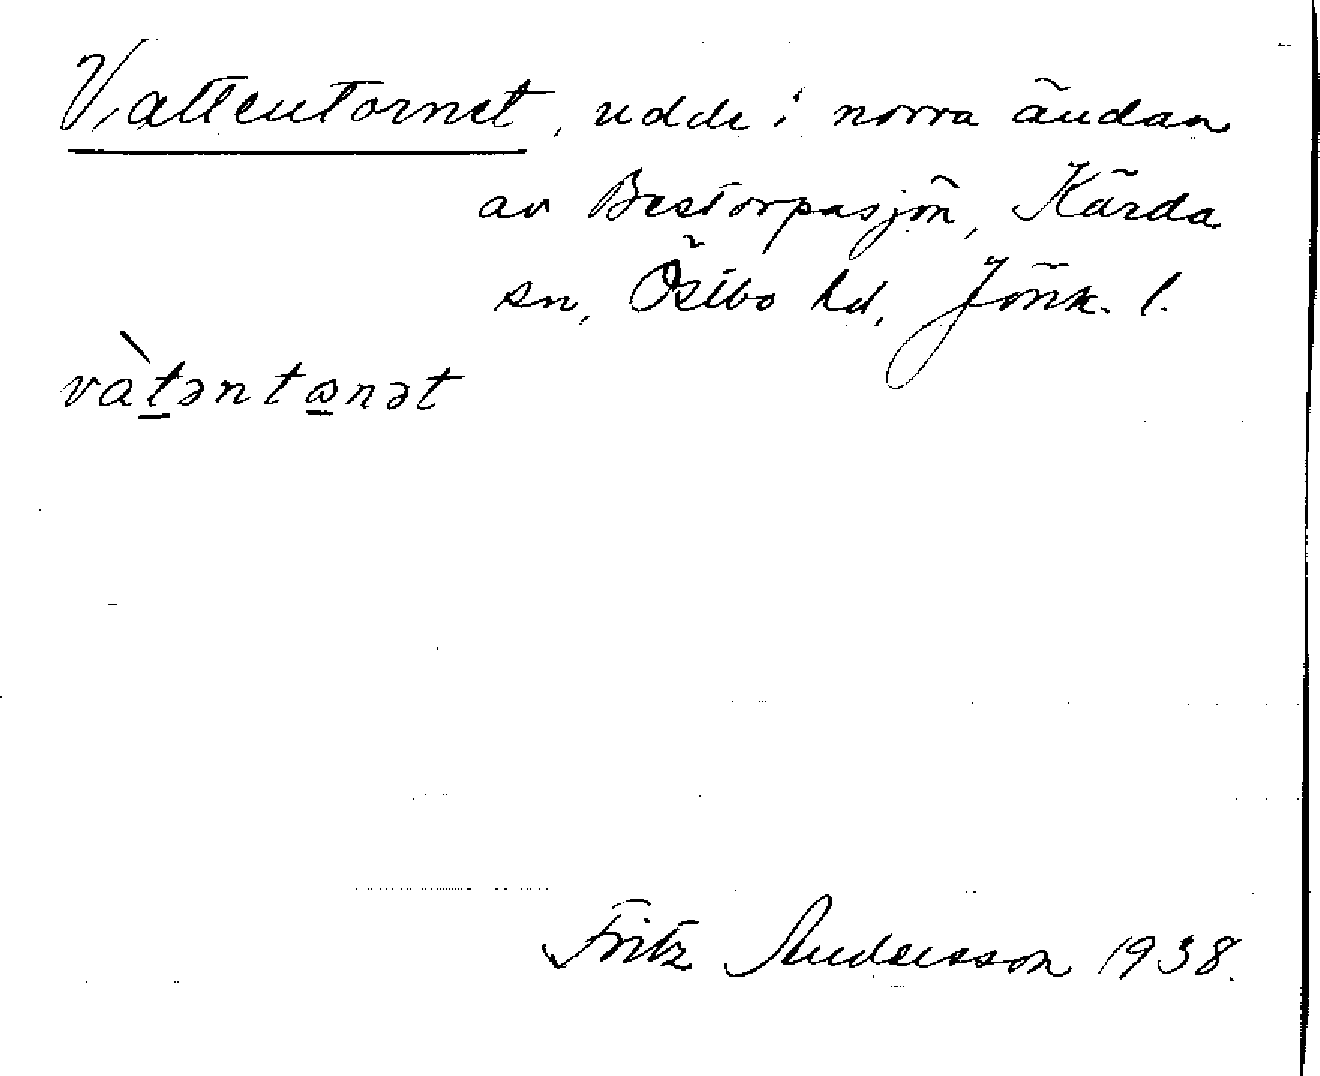 Vattentornet, udde i norra ändan
av Bestorpasjön, Kärda
sn, Östbo hd, Jönk. l.
và̱tənta̱nət
Fritz Andersson 1938.